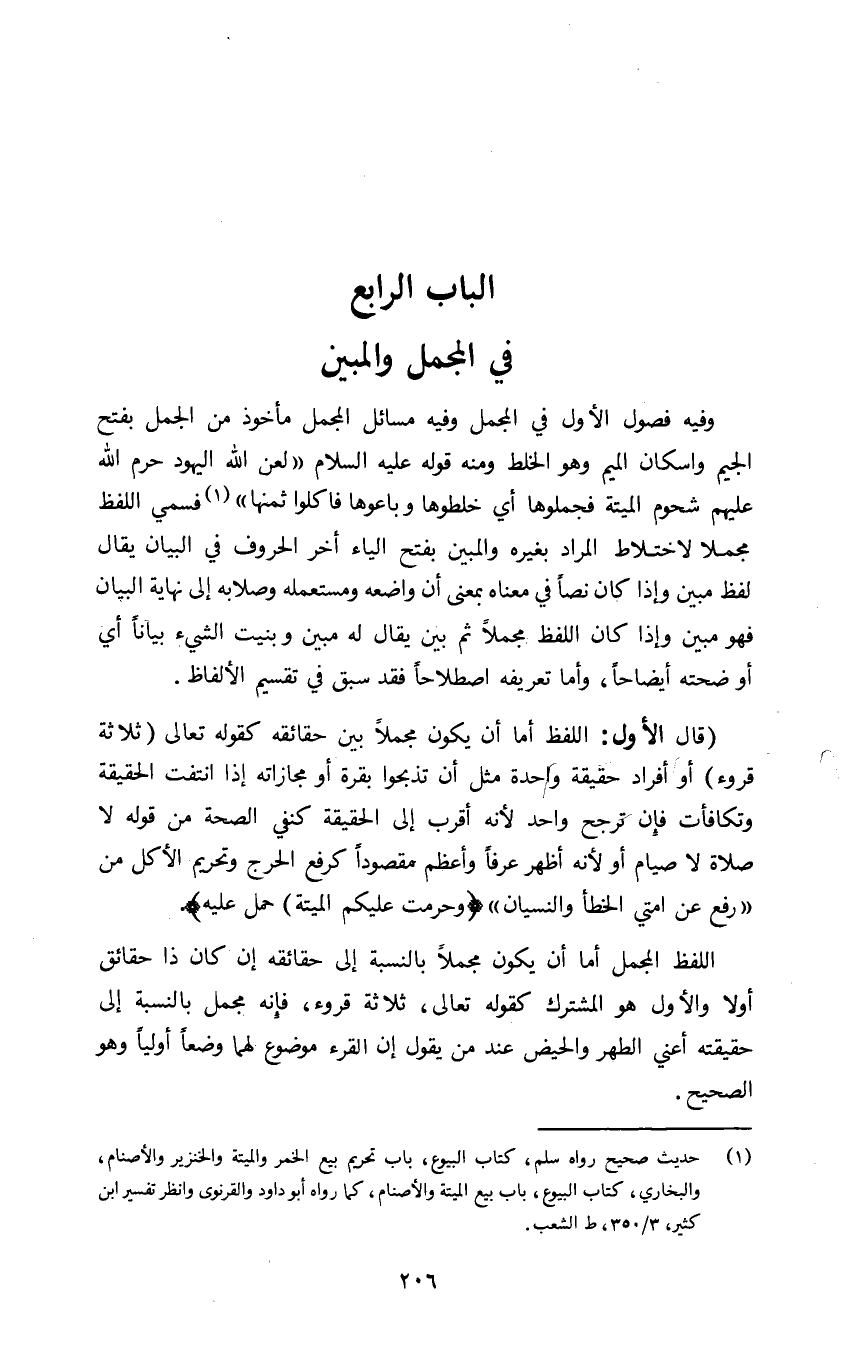 الباب الرابع
في المجمل والمبين
وفيه فصول الأول في المجمل وفيه مسائل المجمل مأخوذ من الجمل بفتح
الجيم واسكان الميم وهو الخلط ومنه قوله عليه السلام «لعن الله اليهود حرم الله
عليهم شحوم الميتة فجملوها أي خلطوها وباعوها فاكلوا ثمنها»(١) فسمي اللفظ
مجملا لاختلاط المراد بغيره والمبين بفتح الياء أخر الحروف في البيان يقال
لفظ مبين وإذا كان نصاً في معناه بمعنى أن واضعه ومستعمله وصلابه إلى نهاية البيان
فهو مبين وإذا كان اللفظ مجملاً ثم بين يقال له مبين وبنيت الشيء بياناً أي
أو ضحته أيضاحاً، وأما تعريفه اصطلاحاً فقد سبق في تقسيم الألفاظ.
(قال الأول: اللفظ أما أن يكون مجملاً بين حقائقه كقوله تعالى (ثلاثة
قروء) أو أفراد حقيقة واحدة مثل أن تذبحوا بقرة أو مجازاته إذا انتفت الحقيقة
وتكافأت فإن ترجح واحد لأنه أقرب إلى الحقيقة كنفي الصحة من قوله لا
صلاة لا صيام أو لأنه أظهر عرفاً وأعظم مقصوداً كرفع الحرج وتحريم الأكل من
«رفع عن امتي الخطأ والنسيان» ﴿وحرمت عليكم الميتة) حمل عليه﴾.
اللفظ المجمل أما أن يكون مجملاً بالنسبة إلى حقائقه إن كان ذا حقائق
أولا والأول هو المشترك كقوله تعالى، ثلاثة قروء، فإنه مجمل بالنسبة إلى
حقيقته أعني الطهر والحيض عند من يقول إن القرء موضوع لهما وضعاً أولياً وهو
الصحيح.
(١) حديث صحيح رواه سلم، كتاب البيوع، باب تحريم بيع الخمر والميتة والخنزير والأصنام،
والبخاري، كتاب البيوع، باب بيع الميتة والأصنام، كما رواه أبو داود والقرنوى وانظر تفسير ابن
كثير، ٣٥٠/٣، ط الشعب.
٢٠٦